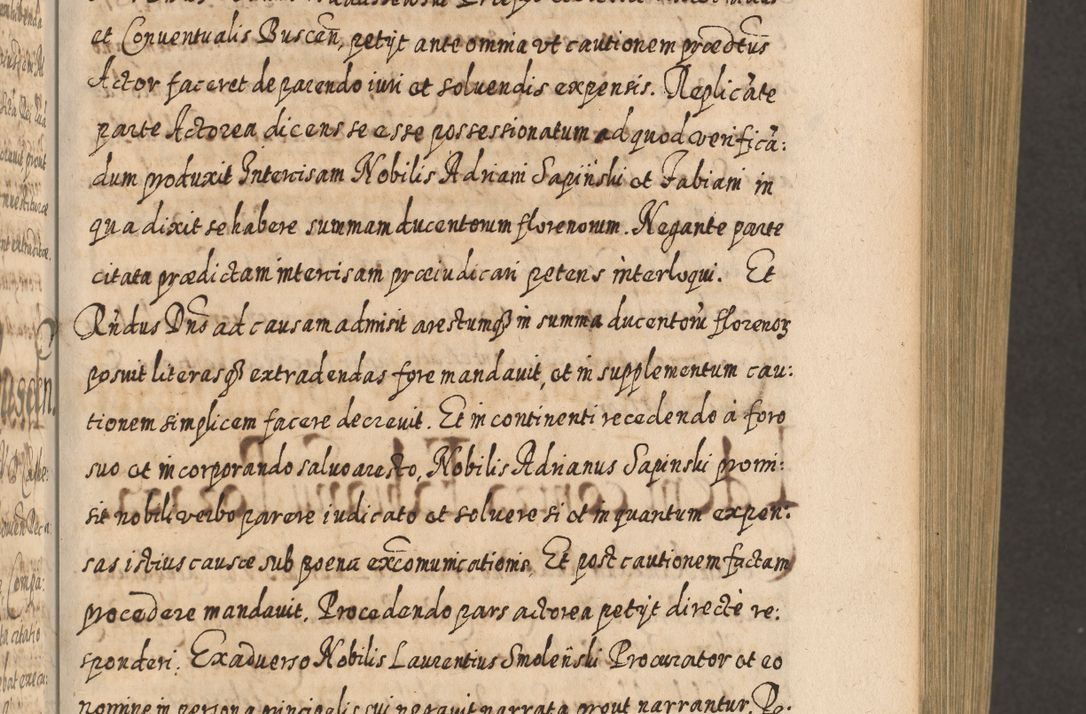 et Conventualis Buscen, petijt ante omnia vt cautionem prædctus
Actor faceret de parendo iuri et soluendis expensis. Replicate
parte Actorea dicens se esse possessionatum ad quod verificã:
dum produxit Intercisam Nobilis Adriani Sapiński et Fabiani in
qua dixit se habere summam ducentorum florenorum. Negante parte
citata prædictam intercisam præiudicari petens interloqui. Et
Rñdus Dns ad causam admisit arestumq3 in summa ducentorũ florenor
posuit literasq3 extradendas fore mandauit, et in supplementum cau:
tionem simplicem facere decreuit. Et in continenti recedendo à foro
suo et incorporando saluo aresto, Nobilis Adrianus Sapinski promi:
sit nobili verbo parere iudicato et soluere si et in quantum expen:
sas istius causæ sub poena excomunicationis. Et post cautionem factam
procedere mandauit. Procedendo pars actorea petijt directè re:
sponderi. Exaduerso Nobilis Laurentius Smoleński Procurator et eo
nomine in persona principalis sui negauit narrata prout narrantur. Re: